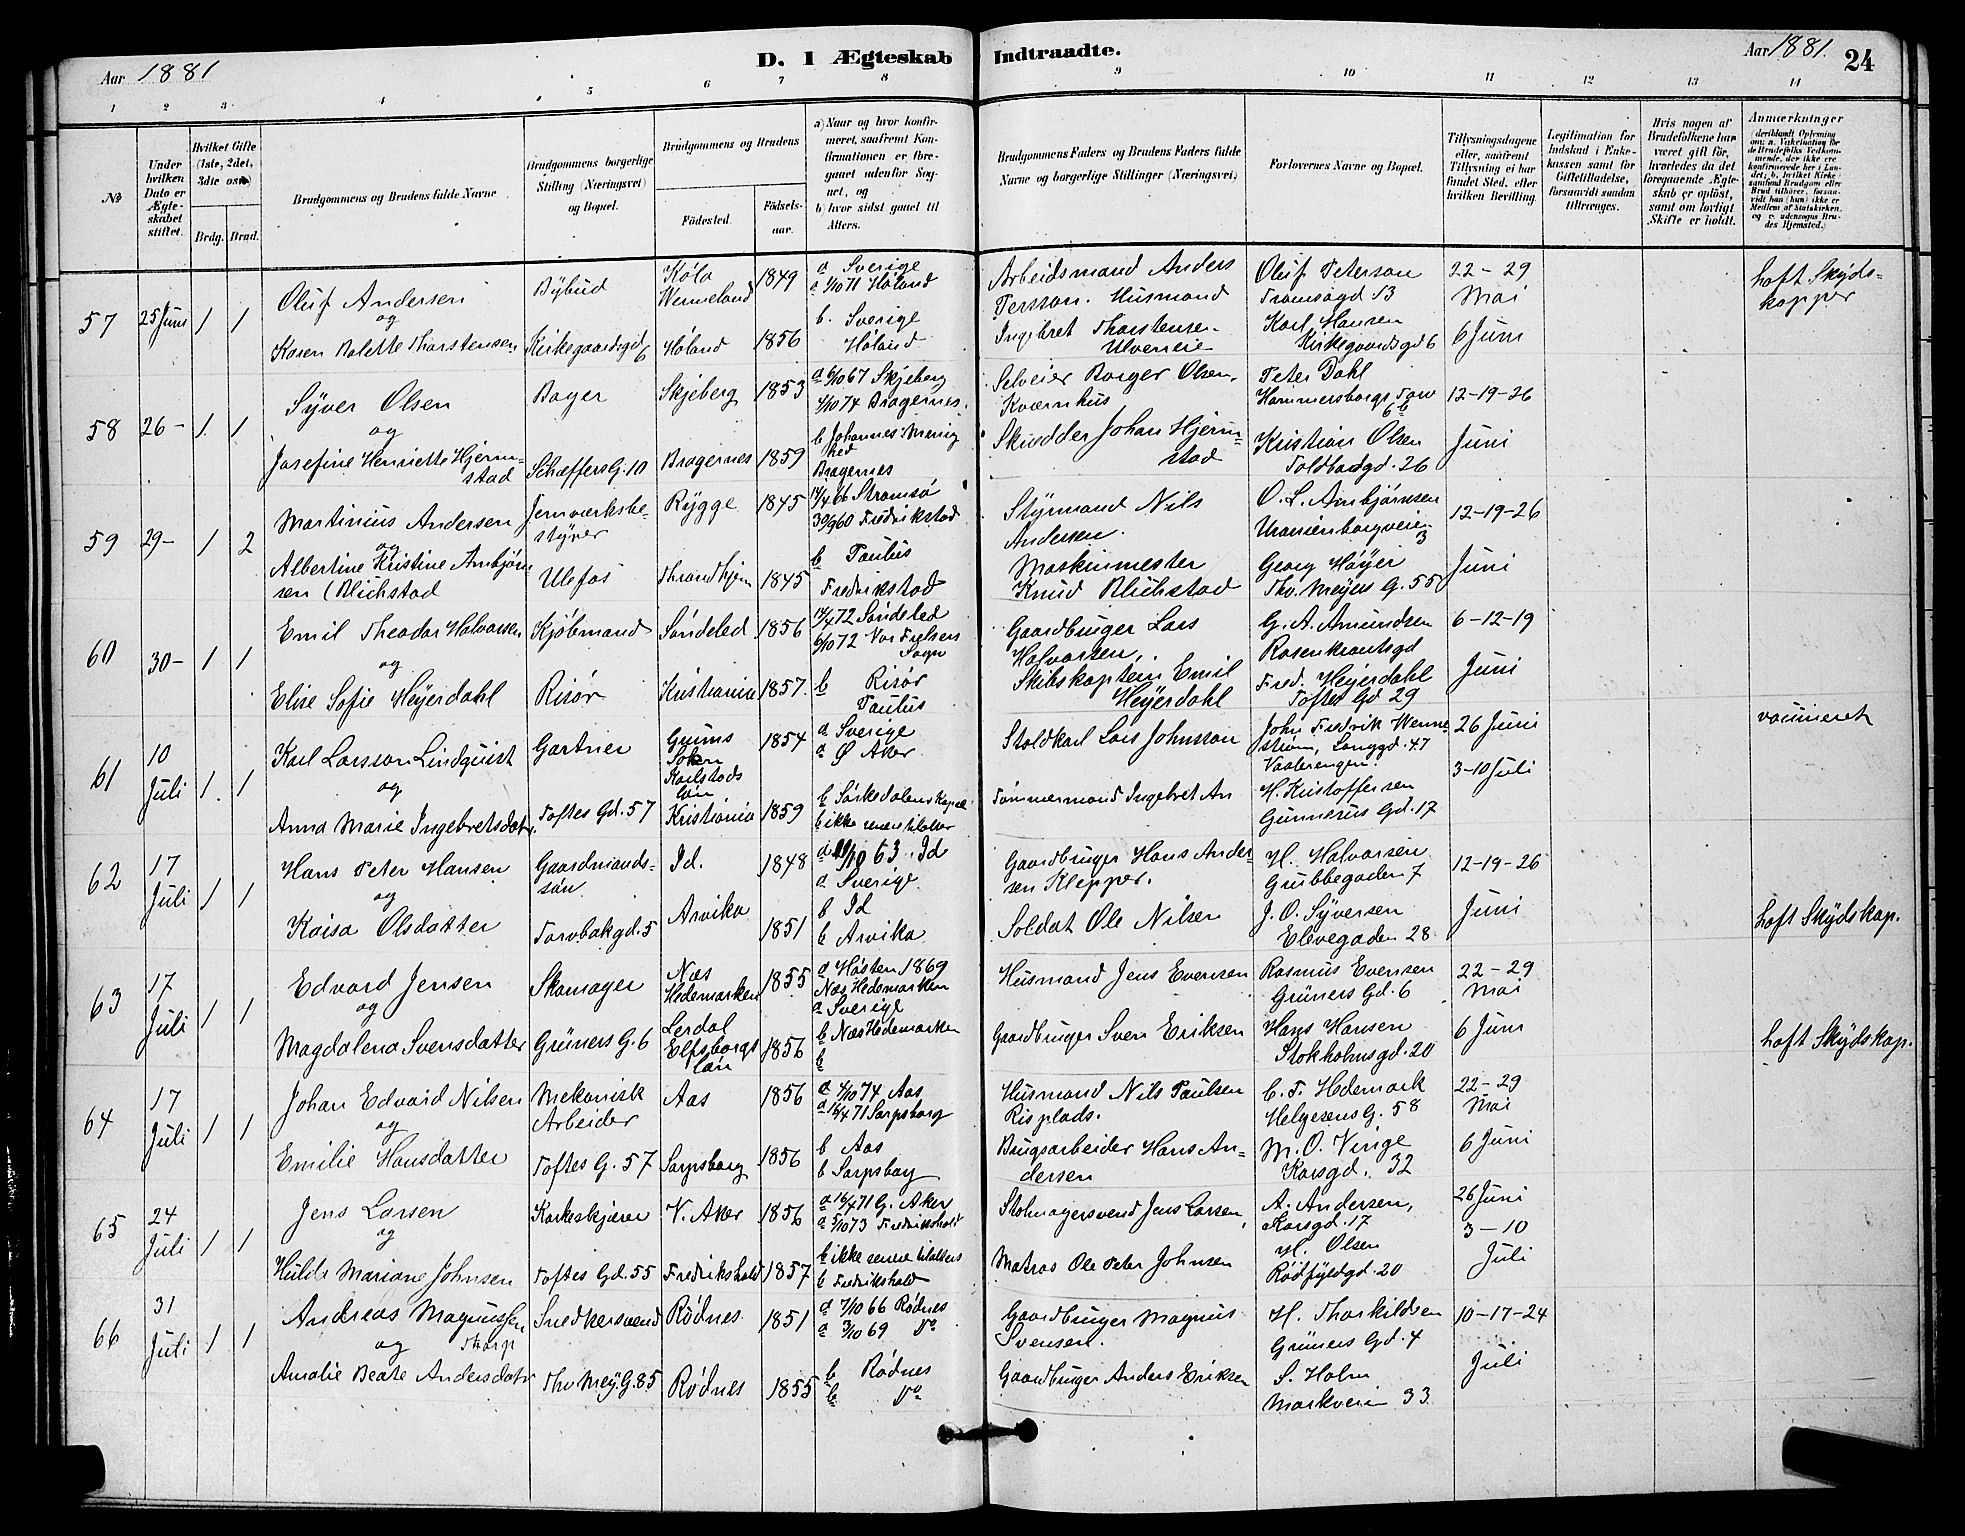 Aar 1881
D. I Ægteskab Indtraadte.
Aar 1881.
24
1 2 3 4 5 6 7 8 9 10 11 12 13 14
No
Under hvilken Dato er Ægteskabet stiftet.
Hvilket Gifte (1ste, 2det, 3die osv)
Brdg. Brud.
Brudgommens og Brudens fulde Navne
Brudgommens borgerlige Stilling (Næringsvei) og Bopæl.
Brudgommens og Brudens
Födested.
Födselsaar.
a) Naar og hvor konfirmeret, saafremt Konfirmationen er foregaaet udenfor Sognet, og
b) hvor sidst gaaet til Alters.
Brudgommens Faders og Brudens Faders fulde Navne og borgerlige Stillinger (Næringsvei)
Forlovernes Navne og Bopæl.
Tillysningsdagene eller, saafremt Tillysning ei har fundet Sted, efter hvilken Bevilling.
Legitimation for Indskud i Enkekassen samt for Giftetilladelse, forsaavidt saadan tiltrænges.
Hvis nogen af Brudefolkene har været gift för, hvorledes da det foregaaende Ægteskab er oplöst, samt om lovligt Skifte er holdt.
Anmærkninger
57 25 Juni 1 1
Oluf Andersen
og
Karen Valette Thorstensen
Bybud
Kirkegaardsgd 6
Køla Wermeland 1849
Høland 1856
a Sverige
a 1/10 71 Høland
b. Sverige
Høland
Arbeidsmand Anders
Persson. Husmand
Ingebret Thorstensen
Ulverneie
Oluf Peterson
Tromsøgd 13
Karl Hansen
Kirkegaardsgd 6
22-29
Mai
6 Juni
haft Skyds-
kopper
58 26- 1. 1
Syver Olsen
og
Josefine Henriette Hjerm-
stad
Bager
Schæffers G. 10
Skjeberg 1853
Bragernes 1859
a 6/10 67 Skjeberg
4/10 74 Bragernes.
b Johannes Menig
hed
Bragernes
Selveier Borger Olsen,
Kværnhus
Skrædder Johan Hjerm-
stad
Peter Dahl
Hammersborgs Torv
6b
Kristian Olsen
Toldbodgd. 26
12-19-26
Juni
59 29- 1 2
Martinius Andersen
og
Albertine Kristine Ambjørn
sen (Blichstad
Jernværksbe-
styrer
Ulefos
Rygge 1845
Throndhjem 1845
14/4 66 Strømsø
30/9 60 Fredrikstad
b Paulus
Fredrikstad
Styrmand Nils
Andersen.
Maskinmester
Knud Blichstad
O. L. Ambjørnsen
Uranienborgveien
3
Georg Høyer
Thv. Meyers G. 55
12-19-26
Juni
60 30- 1 1
Emil Theodor Halvorsen
og
Elise Sofie Heyerdahl
Kjøbmand
Risør
Søndeled 1856
Kristiania 1857.
14/4 72 Søndeled
6/10 72 Vor Frelsers
Sogn
b Risør
Paulus
Gaardbruger Lars
Halvorsen,
Skibskaptein Emil
Heyerdahl
G. A. Amundsen
Rosenkrantsgd
Fred. Heyerdahl
Toftes Gd 29
6-12-19
Juni
61 10 Juli 1. 1
Karl Larsson Lindquist
og
Anna Marie Ingebretsdatr.
Gartner
Toftes Gd. 57
Grums
Soken
Karlstads
Län 1854
Kristiania 1859
a Sverige
a Ø Aker
b Sørkedalens Kapel
b ikke senere tilalter
Staldkarl Lars Johnsson
Tømmermand Ingebret An
John Fredrik Wenne
strøm, Langgd. 47
Vaalerengen.
H. Kristoffersen
Gunnerus Gd. 17
26 Juni
3-10 Juli
vacineret
62 17 Juli 1 1
Hans Peter Hansen
og
Kaisa Olsdatter
Gaardmands-
søn
Torvbakgd. 5
Id. 1848
Arvika 1851
a 11/10 63. Id
a Sverige.
b Id
b Arvika
Gaardbruger Hans Ander-
sen Klepper.
Soldat Ole Nilsen
H. Halvorsen
Grubbegaden 7
J. O. Syversen
Elvegaden 28
12-19-26
Juni
haft Skydskop.
63 17 Juli 1 1
Edvard Jensen
og
Magdalena Svensdatter
Skomager
Grüners G. 6
Næs
Hedemarken 1855
Lerdal
Elfsborgs
län 1856
a Høsten 1869
Næs Hedemarken
a Sverige
b Næs Hedemarken
b
Husmand Jens Evensen
Gaardbruger Sven Eriksen
Rasmus Evensen
Grüners Gd. 6
Hans Hansen
Stokholmsgd. 20
22-29
Mai
6 Juni
haft Skydskop.
64 17 Juli 1 1
Johan Edvard Nilsen
og
Emilie Hansdatter
Mekanisk
Arbeider
Toftes G. 57
Aas 1856
Sarpsborg 1856
a 4/10 74 Aas
a 16/4 71 Sarpsborg
b Aas
b Sarpsborg
Husmand Nils Paulsen
Risplads.
Brugsarbeider Hans An-
dersen
C. F. Hedemark
Helgesens G. 58
M. O. Vinge
Korsgd. 32
22-29
Mai
6 Juni
65 24 Juli 1 1
Jens Larsen
og
Hulda Mariane Johnsen
Korkeskjærer
Toftes Gd. 55
V. Aker 1856
Fredrikshald 1857
a 16/4 71 G. Aker
a 5/10 73 Fredrikshald
b ikke senere tilalters
b Fredrikshald
Stolmagersvend Jens Larsen,
Matros Ole Peter Johnsen
A. Andersen,
Korsgd. 17
H. Olsen
Rødfyldgd. 20
26 Juni
3-10
Juli
66 31 Juli 1 1
Andreas Magnussen
og Thorp
Amalie Beate Andersdatr
Snedkersvend
Thv Mey. G. 85
Rødnes 1851
Rødnes 1855
a 7/10 66 Rødnes
a 3/10 69 Do
b Rødnes
b Do
Gaardbruger Magnus
Svensen.
Gaardbruger Anders Eriksen
H. Thorkildsen
Grüners Gd. 4
S. Holm
Markveien 33
10-17-24
Juli